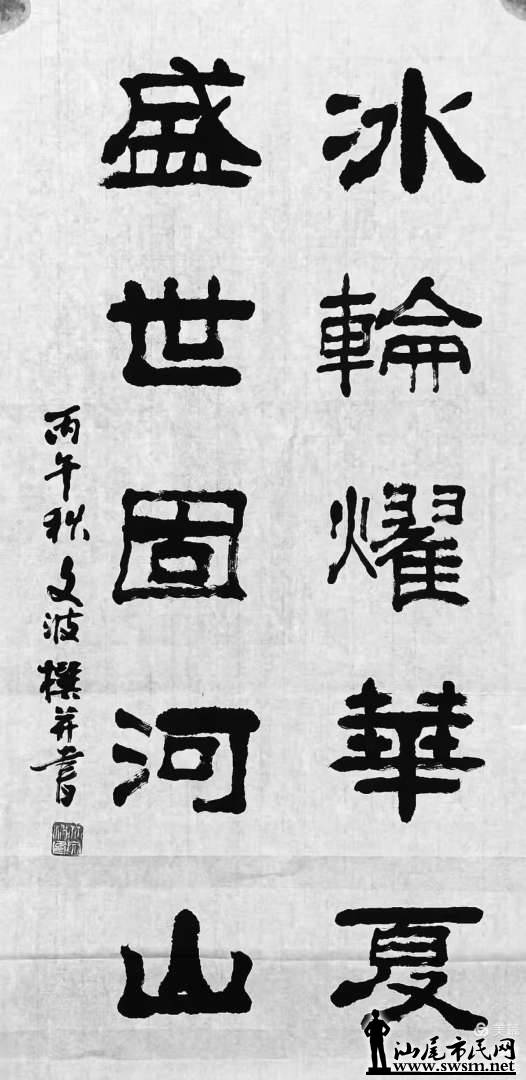 冰輪耀華夏
盛世固河山
丙午秋文波撰并書
汕尾市民网
www.swsm.net